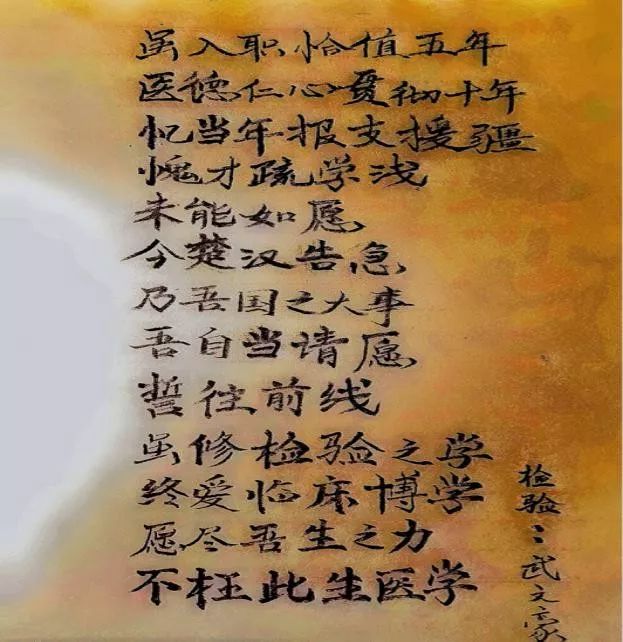 虽入职恰值五年
医德仁心贯彻十年
忆当年报支援疆
愧才疏学浅
未能如愿
今楚汉告急
乃吾国之大事
吾自当请愿
誓往前线
虽修检验之学
终爱临床博学
愿尽吾生之力
不枉此生医学
检验:武文豪